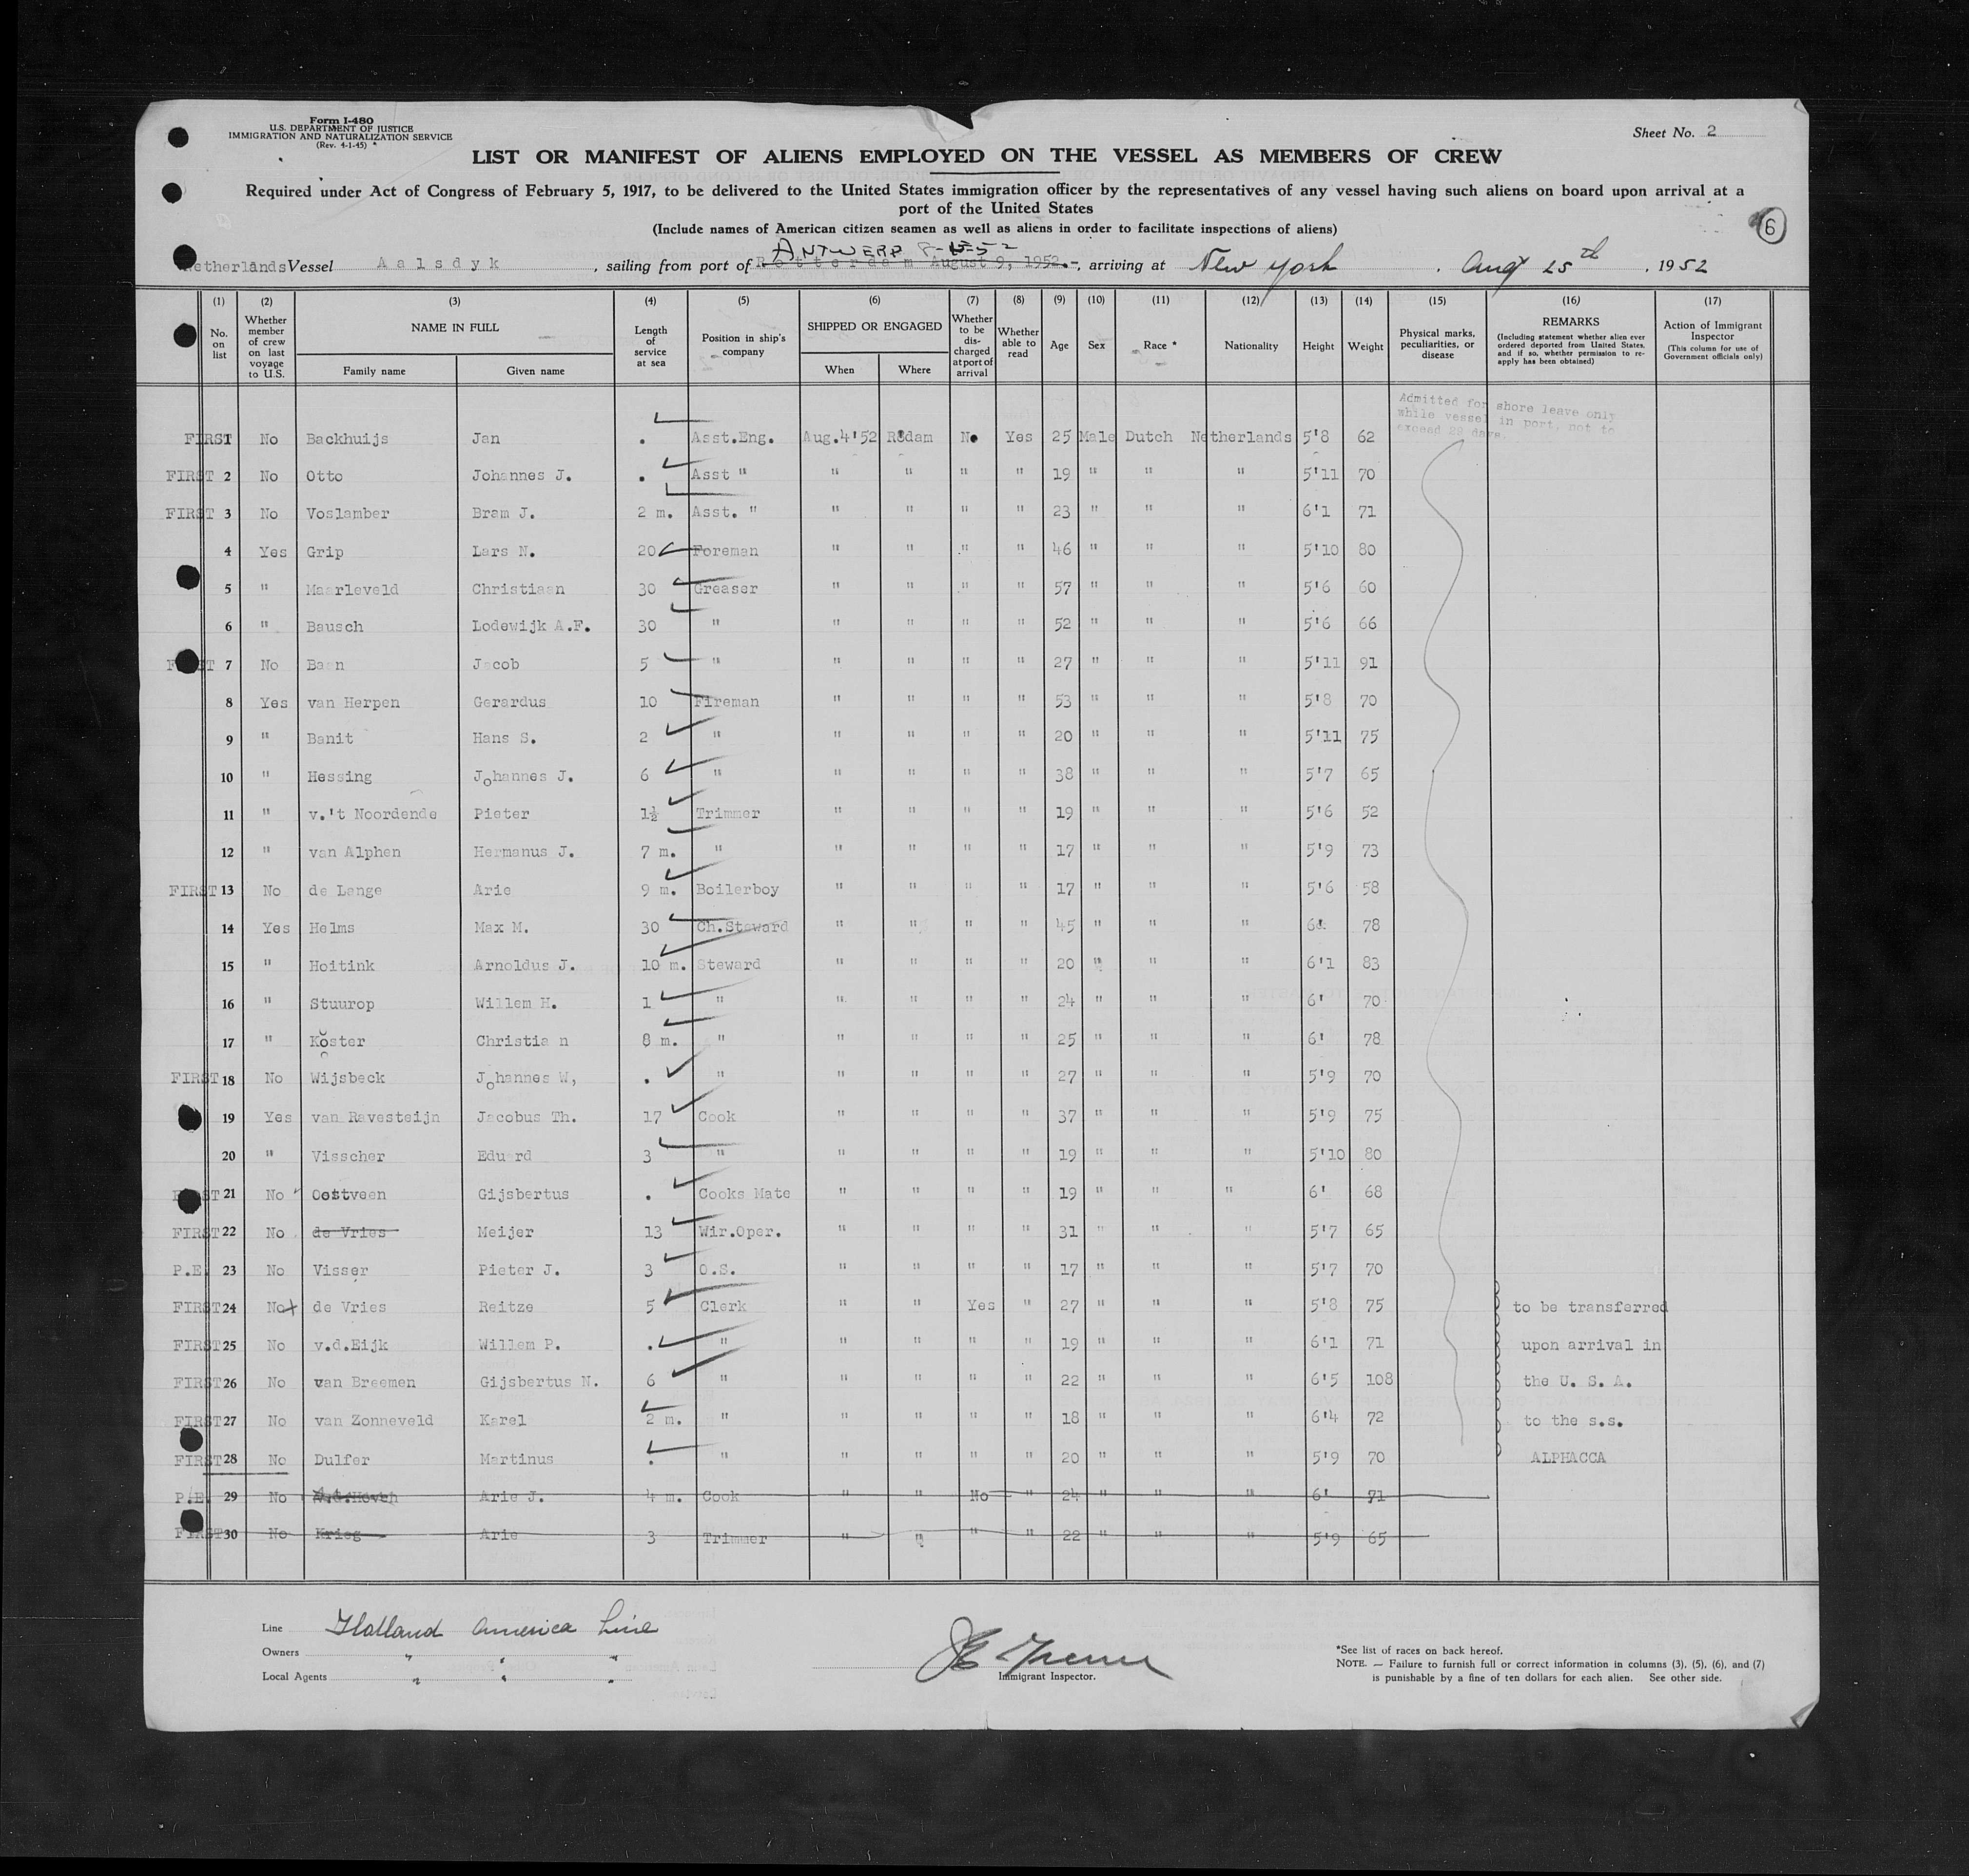 Form I-480
U.S. DEPARTMENT OF JUSTICE
IMMIGRATION AND NATURALIZATION SERVICE
(Rev. 4-1-45)
Sheet No. 2
LIST OR MANIFEST OF ALIENS EMPLOYED ON THE VESSEL AS MEMBERS OF CREW
Required under Act of Congress of February 5, 1917, to be delivered to the United States immigration officer by the representatives of any vessel having such aliens on board upon arrival at a
port of the United States
(Include names of American citizen seamen as well as aliens in order to facilitate inspections of aliens)
6
ANTWERP
Netherlands Vessel Aalsdyk, sailing from port of Rotterdam August 9, 1952.-, arriving at New York, Aug 25th, 1952
(1) (2) (3) (4) (5) (6) (7) (8) (9) (10) (11) (12) (13) (14) (15) (16) (17)
No. on list
Whether member of crew on last voyage to U.S.
NAME IN FULL
Family name
Given name
Length of service at sea
Position in ship's company
SHIPPED OR ENGAGED
When
Where
Whether to be discharged at port of arrival
Whether able to read
Age
Sex
Race *
Nationality
Height
Weight
Physical marks, peculiarities, or disease
REMARKS
(Including statement whether alien ever ordered deported from United States, and if so, whether permission to reapply has been obtained)
Action of Immigrant Inspector
(This column for use of Government officials only)
Admitted for shore leave only
while vessel in port, not to
exceed 29 days.
FIRST 1 No Backhuijs Jan . Asst.Eng. Aug.4'52 R'dam No Yes 25 Male Dutch Netherlands 5'8 62
FIRST 2 No Otto Johannes J. . Asst " " " " " 19 " " " 5'11 70
FIRST 3 No Voslamber Bram J. 2 m. Asst. " " " " " 23 " " " 6'1 71
4 Yes Grip Lars N. 20 Foreman " " " " 46 " " " 5'10 80
5 " Maarleveld Christiaan 30 Greaser " " " " 57 " " " 5'6 60
6 " Bausch Lodewijk A.F. 30 " " " " " 52 " " " 5'6 66
FIRST 7 No Baan Jacob 5 " " " " " 27 " " " 5'11 91
8 Yes van Herpen Gerardus 10 Fireman " " " " 53 " " " 5'8 70
9 " Banit Hans S. 2 " " " " " 20 " " " 5'11 75
10 " Hessing Johannes J. 6 " " " " " 38 " " " 5'7 65
11 " v.'t Noordende Pieter 1½ Trimmer " " " " 19 " " " 5'6 52
12 " van Alphen Hermanus J. 7 m. " " " " " 17 " " " 5'9 73
FIRST 13 No de Lange Arie 9 m. Boilerboy " " " " 17 " " " 5'6 58
14 Yes Helms Max M. 30 Ch.Steward " " " " 45 " " " 6' 78
15 " Hoitink Arnoldus J. 10 m. Steward " " " " 20 " " " 6'1 83
16 " Stuurop Willem H. 1 " " " " " 24 " " " 6' 70
17 " Köster Christia n 8 m. " " " " " 25 " " " 6' 78
FIRST 18 No Wijsbeck Johannes W, . " " " " " 27 " " " 5'9 70
19 Yes van Ravesteijn Jacobus Th. 17 Cook " " " " 37 " " " 5'9 75
20 " Visscher Eduard 3 " " " " " 19 " " " 5'10 80
FIRST 21 No Oostveen Gijsbertus . Cooks Mate " " " " 19 " " " 6' 68
FIRST 22 No de Vries Meijer 13 Wir.Oper. " " " " 31 " " " 5'7 65
P.E. 23 No Visser Pieter J. 3 O.S. " " " " 17 " " " 5'7 70
FIRST 24 No de Vries Reitze 5 Clerk " " Yes " 27 " " " 5'8 75 to be transferred
FIRST 25 No v.d.Eijk Willem P. . " " " " " 19 " " " 6'1 71 upon arrival in
FIRST 26 No van Breemen Gijsbertus N. 6 " " " " " 22 " " " 6'5 108 the U. S. A.
FIRST 27 No van Zonneveld Karel 2 m. " " " " " 18 " " " 6'4 72 to the s.s.
FIRST 28 No Dulfer Martinus . " " " " " 20 " " " 5'9 70 ALPHACCA
P.E. 29 No Arie J. 4 m. Cook " " No " 24 " " " 6' 71
FIRST 30 No Krieg Arie 3 Trimmer " " " " 22 " " " 5'9 65
Line Holland America Line
Owners " " "
Local Agents " " "
Immigrant Inspector.
*See list of races on back hereof.
NOTE. — Failure to furnish full or correct information in columns (3), (5), (6), and (7)
is punishable by a fine of ten dollars for each alien. See other side.